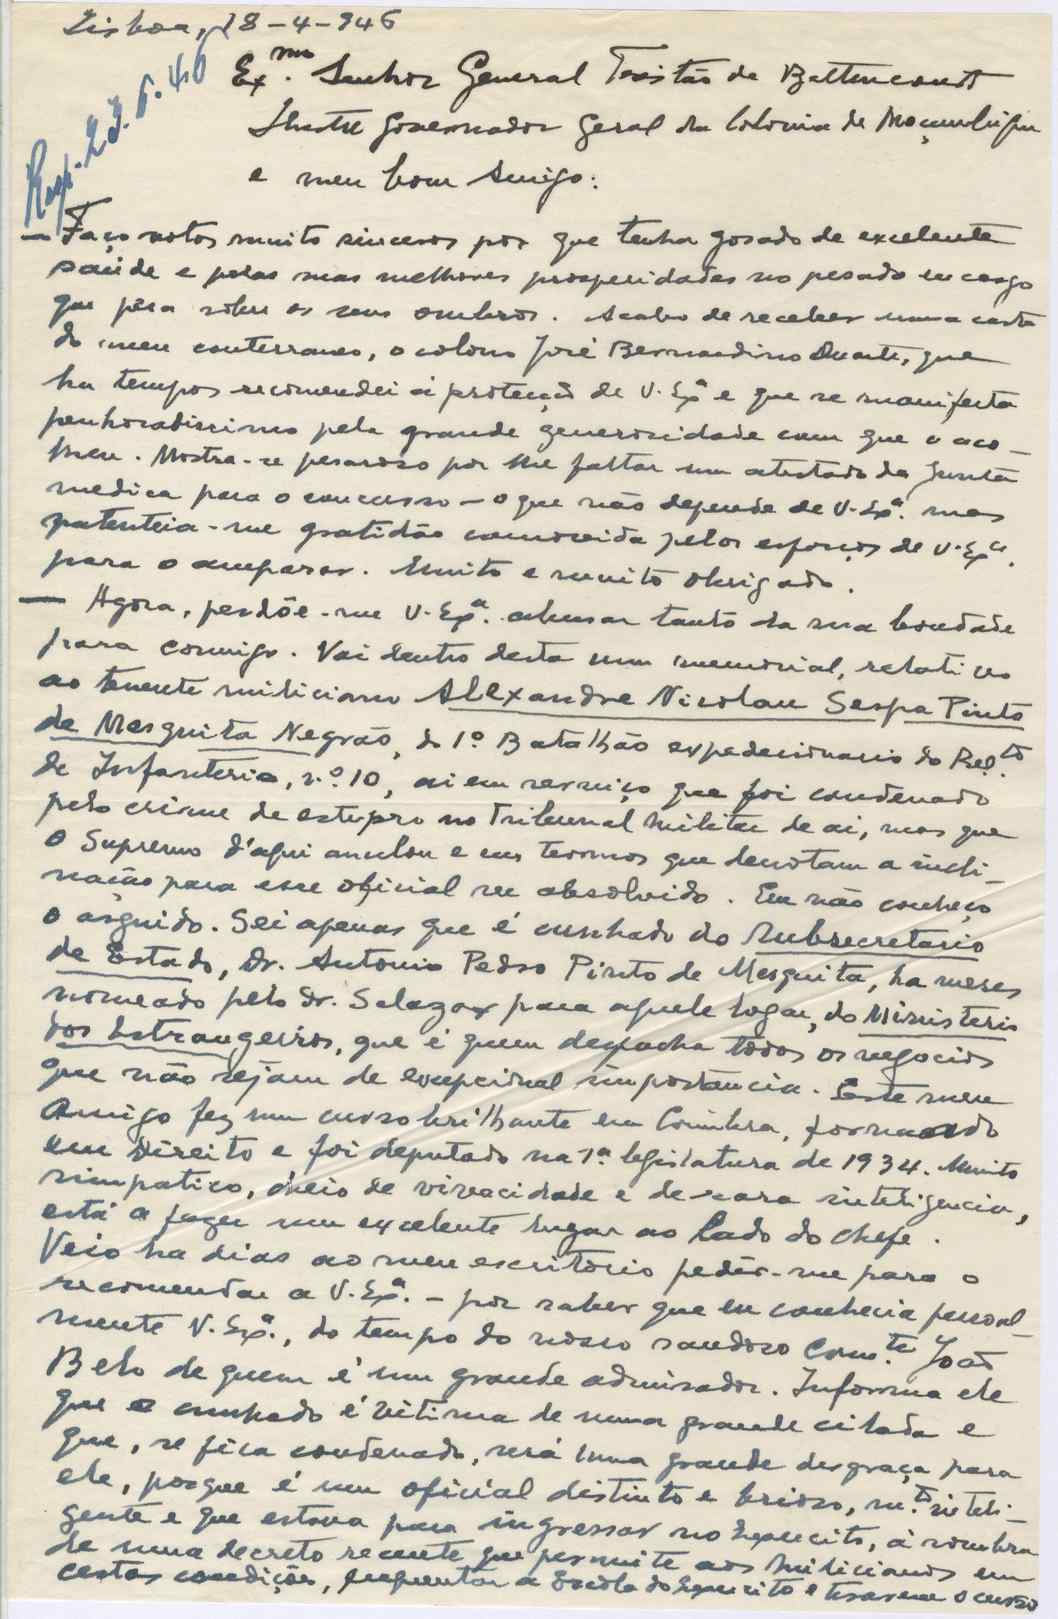 Lisboa, 18-4-946
Resp. 23.5.46
Ex.mo Senhor General Tristão de Bettencourt
Ilustre Governador Geral da Colonia de Moçambique
e meu bom Amigo:
— Faço votos muito sinceros por que tenha gosado de excelente
saúde e pelas suas melhores prosperidades no pesado encargo
que pesa sobre os seus ombros. Acabo de receber uma carta
do meu conterraneo, o colono José Bernardino Duarte, que
ha tempos recomendei á protecção de V. Exª e que se manifesta
penhoradissimo pela grande generosidade com que o aco-
lheu. Mostra-se pesaroso por lhe faltar um atestado da Junta
medica para o concurso – o que não depende de V. Exª. mas
patenteia-me gratidão comovida pelos esforços de V. Exª.
para o amparar. Muito e muito obrigado.
— Agora, perdõe-me V. Exª. abusar tanto da sua bondade
para comigo. Vai dentro desta um memorial, relativo
ao tenente miliciano Alexandre Nicolau Serpa Pinto
de Mesquita Negrão, do 1º Batalhão expedecionario do Regto
de Infanteria, n.º 10, ai em serviço que foi condenado
pelo crime de estupro no Tribunal Militar de ai, mas que
o Supremo d'aqui anulou e em termos que denotam a incli-
nação para esse oficial ser absolvido. Eu não conheço
o arguido. Sei apenas que é cunhado do Subsecretario
de Estado, Dr. Antonio Pedro Pinto de Mesquita, ha meses
nomeado pelo Dr. Salazar para aquele logar, do Ministerio
dos Estrangeiros, que é quem despacha todos os negocios
que não sejam de excepcional importancia. Este meu
Amigo fez um curso brilhante em Coimbra, formando
em Direito e foi deputado na 1ª legislatura de 1934. Muito
simpatico, cheio de vivacidade e de rara inteligencia,
está a fazer um excelente lugar ao lado do Chefe.
Veio ha dias ao meu escritorio pedir-me para o
recomendar a V. Exª. – por saber que eu conhecia pessoal-
mente V. Exª., do tempo do nosso saudoso Com.te João
Belo de quem é um grande admirador. Informa ele
que o cunhado é vitima de uma grande cilada e
que, se fica condenado, será uma grande desgraça para
ele, porque é um oficial distinto e brioso, m.to inteli-
gente e que estava para ingressar no Exercito, á sombra
de uma decreto recente que permite aos milicianos em
certas condições, frequentar a Escola do Exercito e tirarem o curso